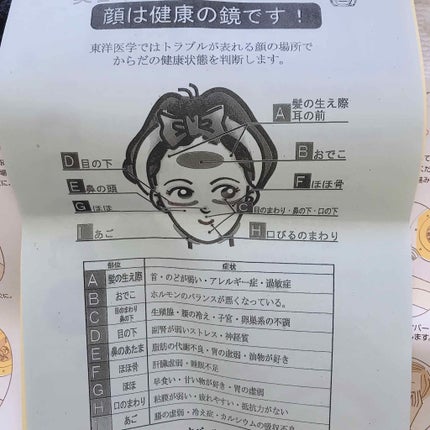 顔は健康の鏡です！
東洋医学ではトラブルが表れる顔の場所で
からだの健康状態を判断します。
A 髪の生え際
耳の前
D 目の下
B おでこ
E 鼻の頭
F ほほ骨
G ほほ
C 目のまわり・鼻の下・口の下
I あご
H 口びるのまわり
部位 症状
A 髪の生え際 首・のどが弱い・アレルギー症・過敏症
B おでこ ホルモンのバランスが悪くなっている。
C 目のまわり 鼻の下 生殖腺・腰の冷え・子宮・卵巣系の不調
D 目の下 副腎が弱いストレス・神経質
E 鼻のあたま 脂肪の代謝不良・胃の虚弱・油物が好き
F ほほ骨 肝臓虚弱・睡眠不足
G ほほ 早食い・甘い物が好き・胃の虚弱
H 口のまわり 粘膜が弱い・疲れやすい・抵抗力がない
あご 腸の虚弱・冷え症・カルシウムの吸収不良